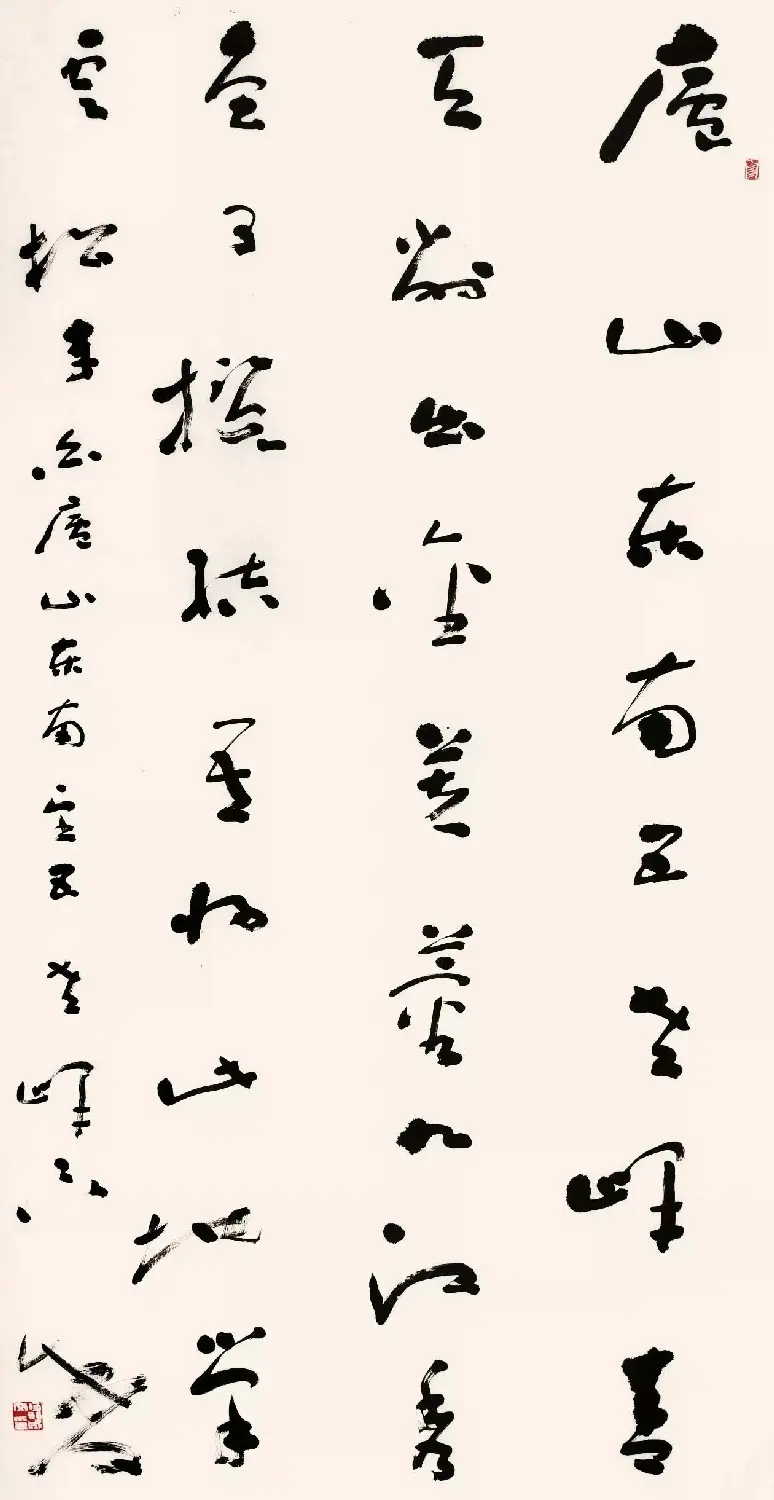 廬山东南五老峰青
天削出金芙蓉九江秀
色可揽结吾将此地巢
云松李白廬山东南望五老峰